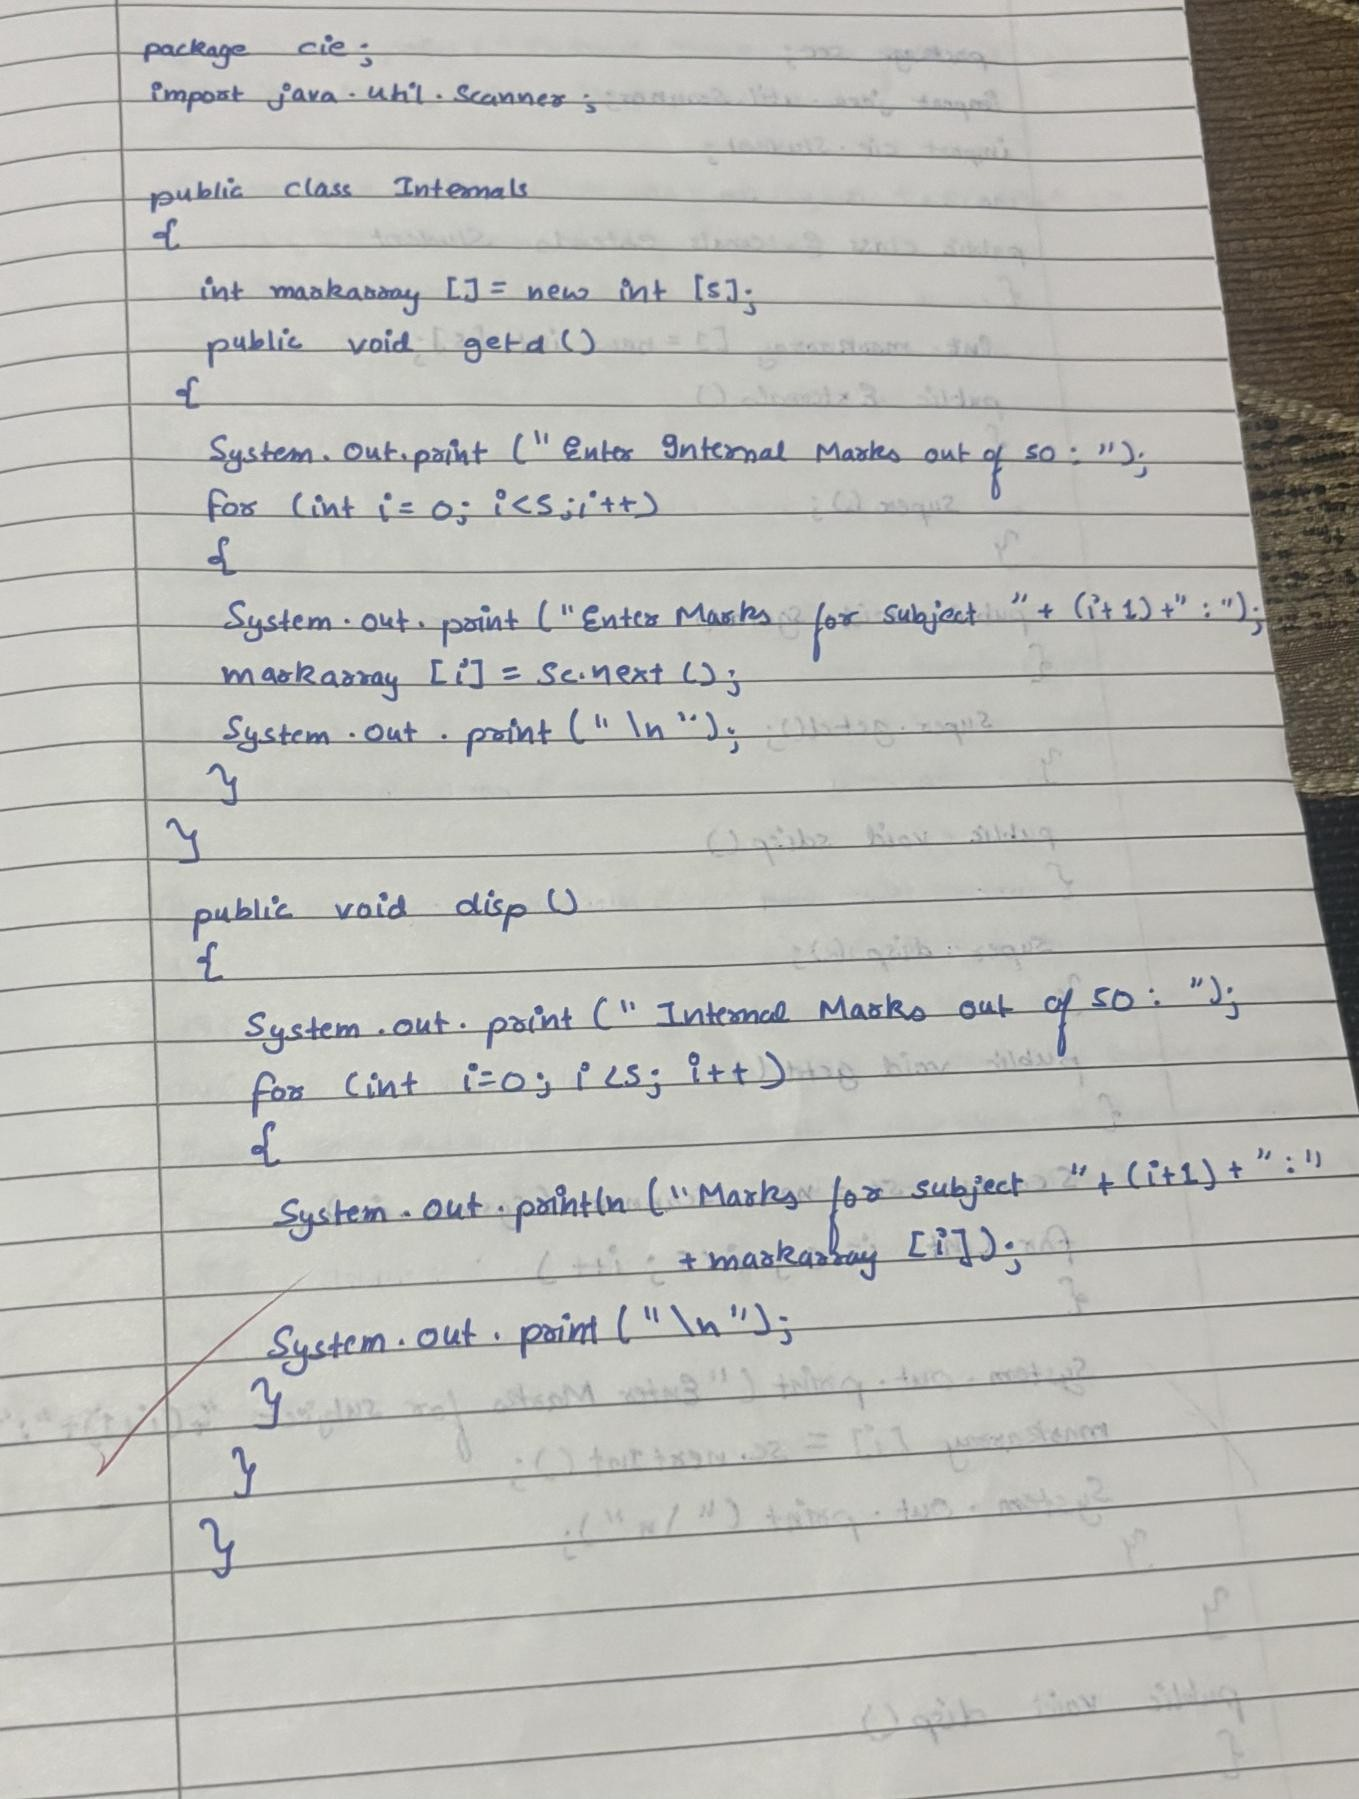 package cie;
import java.util.Scanner;
public class Internals
{
int markarray [] = new int [5];
public void getd()
{
System.out.print (" Enter Internal Marks out of 50 : ");
for (int i = 0; i<5; i++)
{
System.out.print ("Enter Marks for subject " + (i+1) + " : ");
markarray [i] = sc.next ();
System.out.print (" \n ");
}
}
public void disp ()
{
System.out.print (" Internal Marks out of 50 : ");
for (int i=0; i<5; i++)
{
System.out.println ("Marks for subject " + (i+1) + " : "
+ markarray [i]);
System.out.print (" \n ");
}
}
}